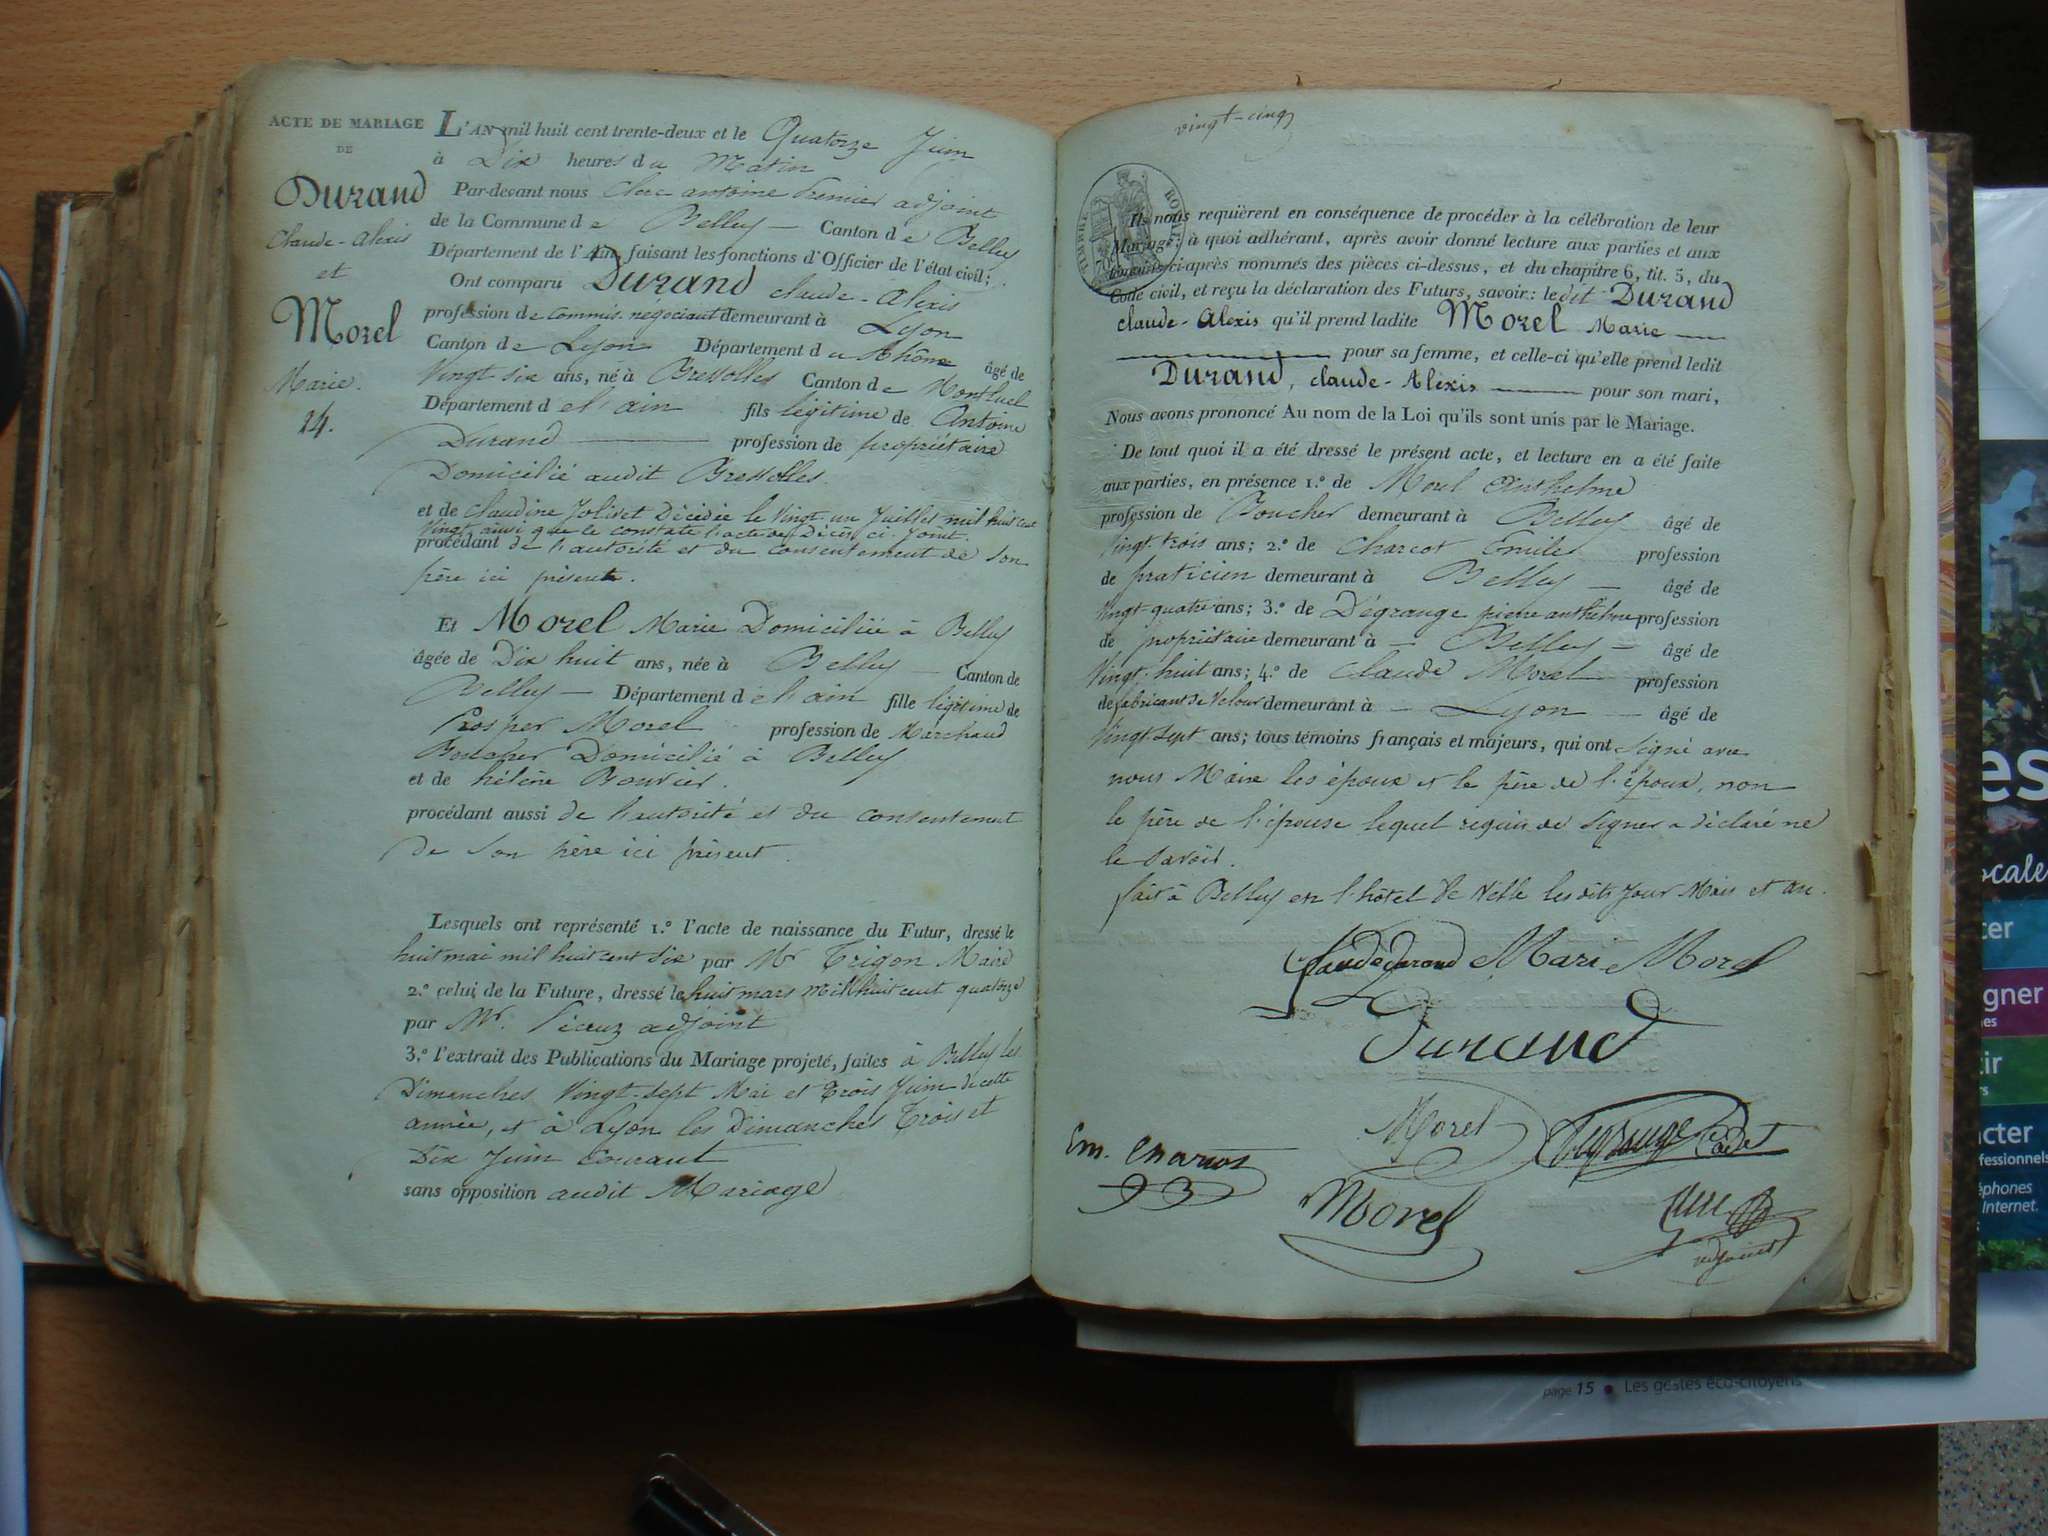 ACTE DE MARIAGE
DE
Durand
Claude-Alexis
et
Morel
Marie.
14.
L'AN mil huit cent trente-deux et le Quatorze Juin
à Dix heures du Matin
Par-devant nous Clerc antoine Premier adjoint
de la Commune de Belley — Canton de Belley
Département de l'Ain, faisant les fonctions d'Officier de l'état civil;
Ont comparu Durand claude-Alexis
profession de commis negociant demeurant à Lyon
Canton de Lyon Département du Rhône âgé de
Vingt six ans, né à Bressolles Canton de Montluel
Département de l'ain fils légitime de Antoine
Durand — profession de propriétaire
Domicilié audit Bressolles.
et de Claudine Jolivet Décédée le Vingt un Juillet mil huit cent
Vingt, ainsi que le constate l'acte de Décès ci-Joint.
procédant de l'autorité et du consentement de son
père ici présent.
Et Morel Marie Domiciliée à Belley
âgée de Dix huit ans, née à Belley — Canton de
Belley — Département de l'ain fille légitime de
Prosper Morel profession de Marchand
Boucher Domicilié à Belley
et de hélène Bouvier.
procédant aussi de l'autorité et du consentement
de son père ici présent.
Lesquels ont représenté 1.º l'acte de naissance du Futur, dressé le
huit mai mil huit cent six par Mr Trigon Maire
2.º celui de la Future, dressé le huit mars mil huit cent quatorze
par Mr. adjoint
3.º l'extrait des Publications du Mariage projeté, faites à Belley les
Dimanches Vingt-sept Mai et Trois Juin de cette
année, et à Lyon les Dimanches Trois et
Dix Juin Courant
sans opposition audit Mariage
vingt-cinq
TIMBRE ROYAL
70
Ils nous requièrent en conséquence de procéder à la célébration de leur
Mariage; à quoi adhérant, après avoir donné lecture aux parties et aux
témoins ci-après nommés des pièces ci-dessus, et du chapitre 6, tit. 5, du
Code civil, et reçu la déclaration des Futurs, savoir: ledit Durand
claude-Alexis qu'il prend ladite Morel Marie —
— pour sa femme, et celle-ci qu'elle prend ledit
Durand, claude-Alexis — pour son mari,
Nous avons prononcé Au nom de la Loi qu'ils sont unis par le Mariage.
De tout quoi il a été dressé le présent acte, et lecture en a été faite
aux parties, en présence 1.º de Morel Anthelme
profession de Boucher demeurant à Belley âgé de
Vingt-trois ans; 2.º de Charcot Emile profession
de praticien demeurant à Belley — âgé de
Vingt-quatre ans; 3.º de Dégrange pierre anthelme profession
de propriétaire demeurant à — Belley — âgé de
Vingt-huit ans; 4.º de Claude Morel profession
de fabricant de Velour demeurant à — Lyon — âgé de
Vingt-sept ans; tous témoins français et majeurs, qui ont signé avec
nous Maire les époux et le père de l'époux, non
le père de l'épouse lequel requis de signer a déclaré ne
le savoir.
fait à Belley en l'hôtel de Ville les dits Jour Mois et an.
Claude durand Marie Morel
Durand
Morel
Degrange Cadet
Em. Charcot
Morel
adjoint
es
ocale
cter
fessionnels
éphones
Internet.
page 15 • Les gestes éco-citoyens